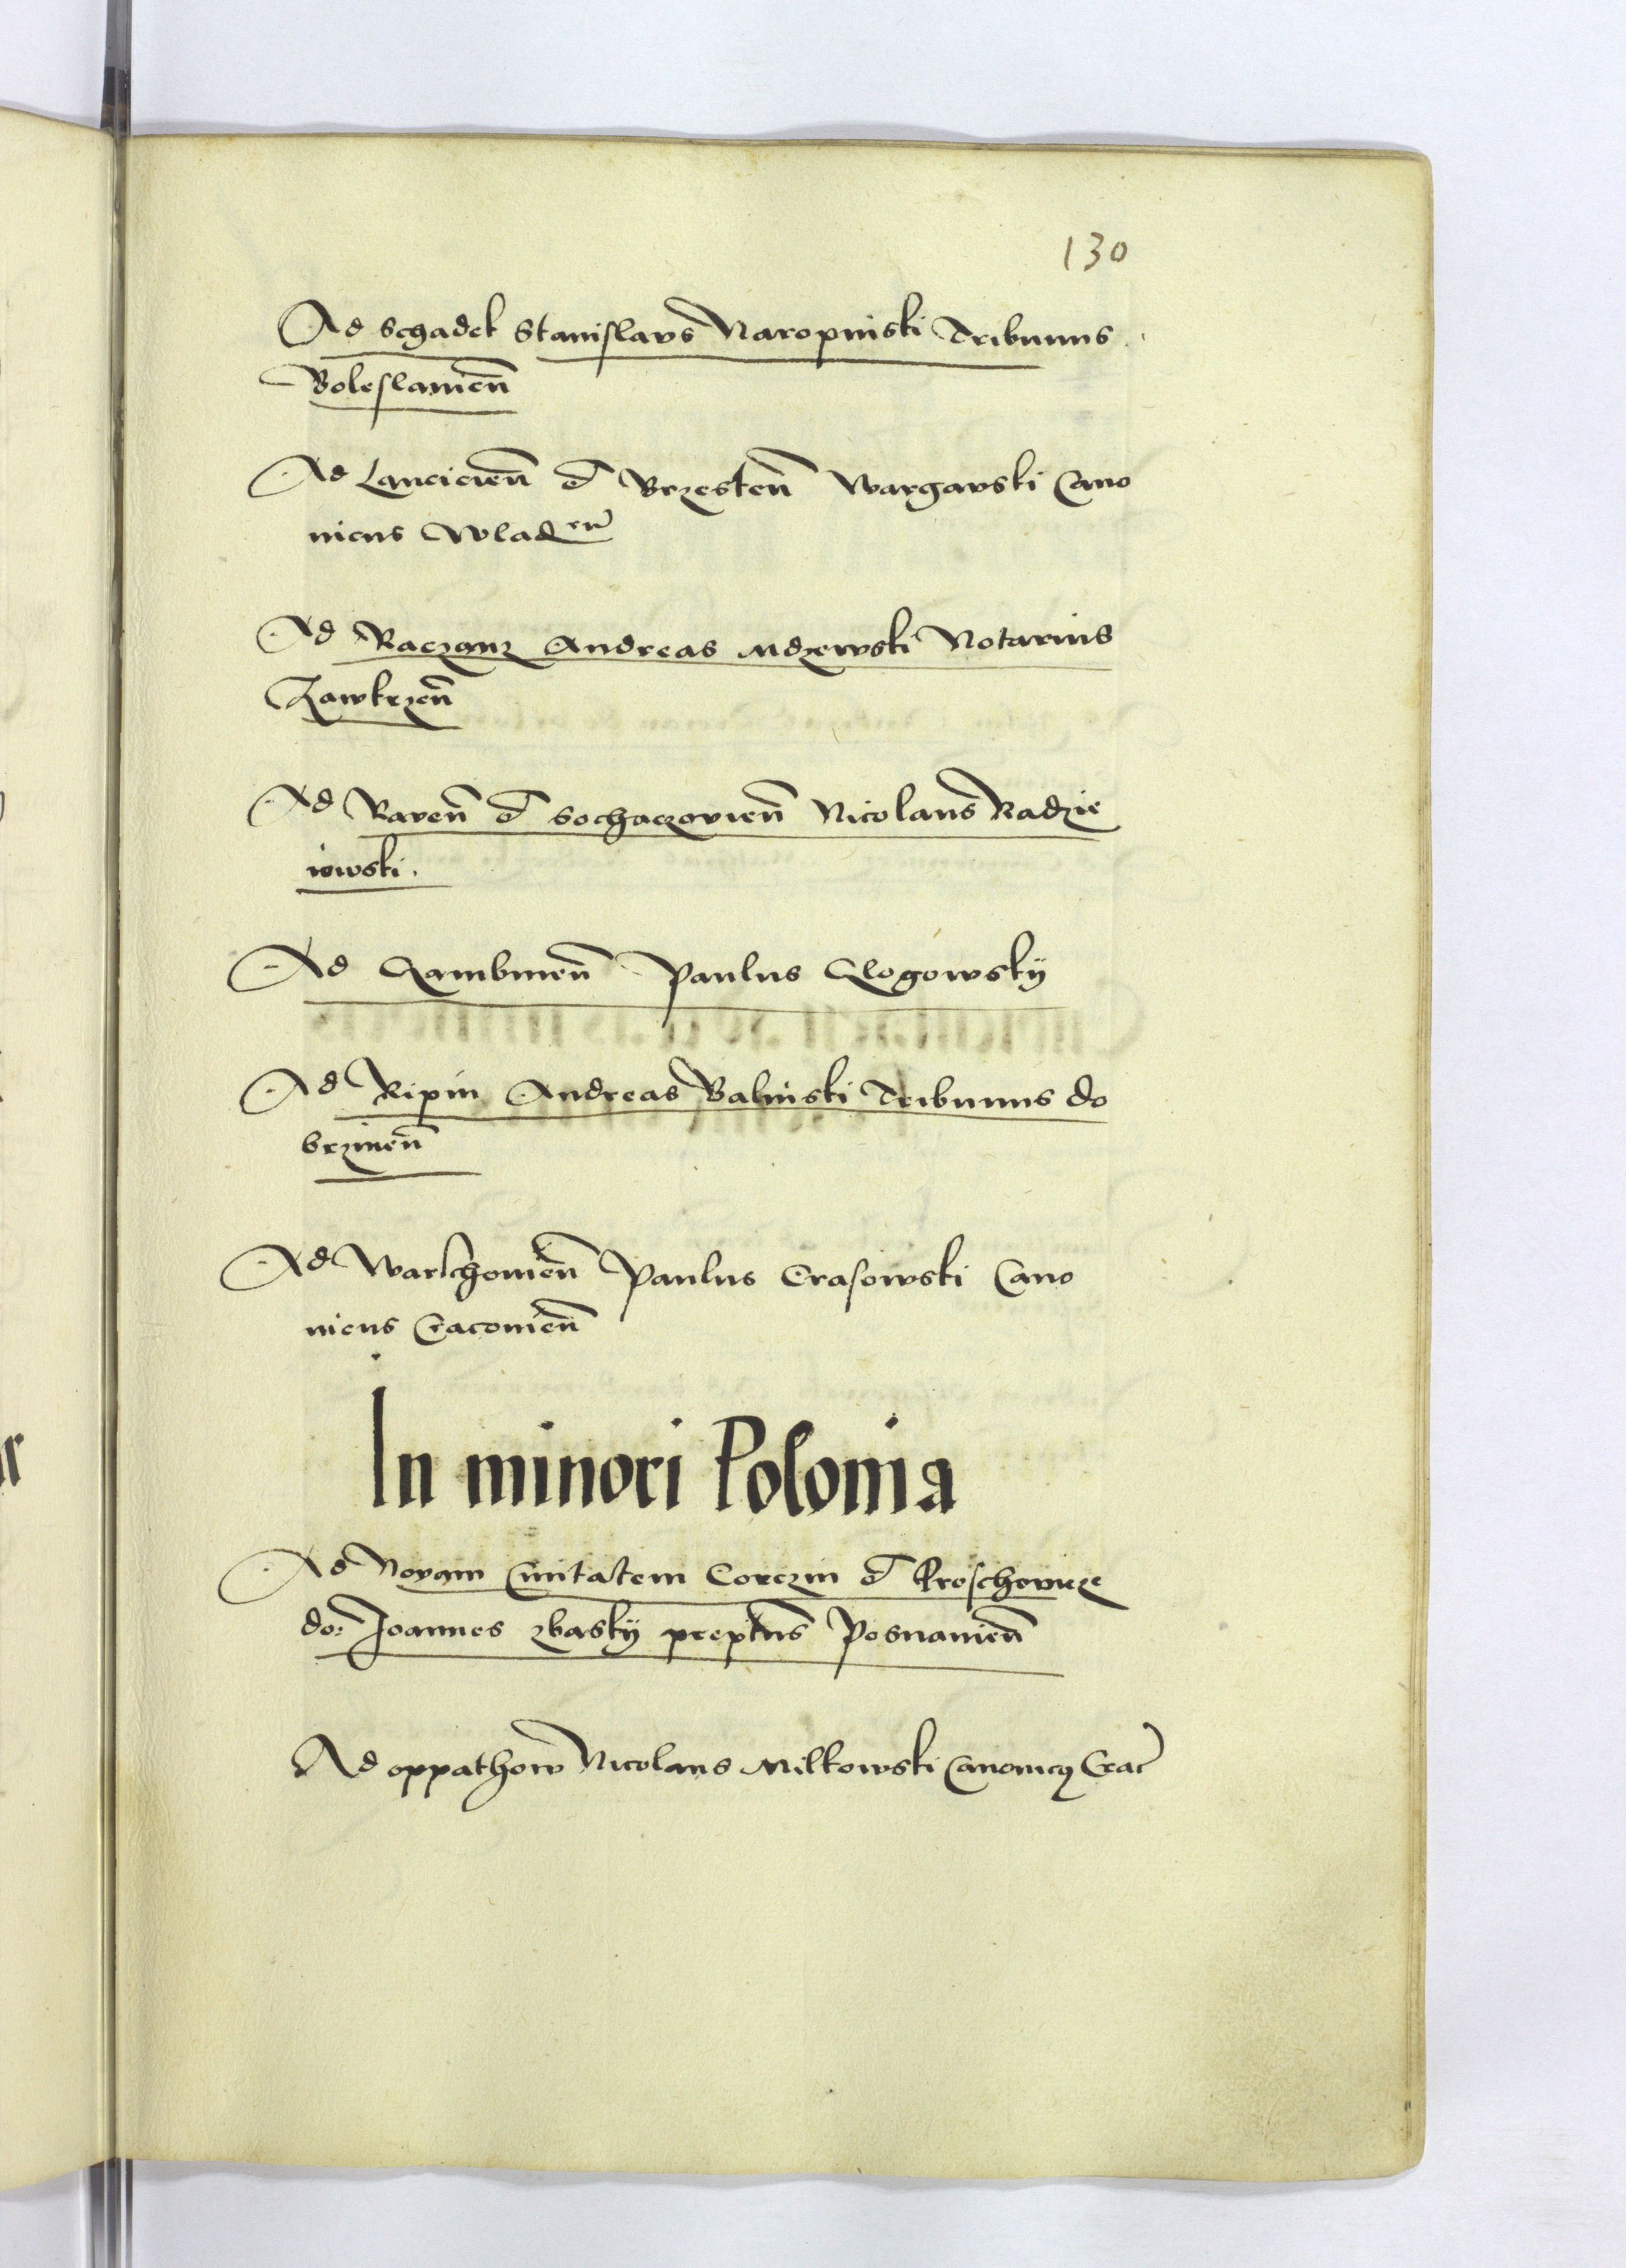 130
Ad Schadek Stanislavs Naropinski Tribunus
Boleslauien̄
Ad Lancicien̄ et Brzesten̄ Wargavski Cano
nicus Wladen̄
Ad Raczanz Andreas Mdzewski Notarius
Zawkrzen̄
Ad Raven̄ et Sochaczovien̄ Nicolaus Radzie
iowski.
Ad Gambinen̄ Paulus Glogowskij
Ad Ripin Andreas Balinski Tribunus do
brzinen̄
Ad Warschouien̄ Paulus Crasowski Cano
nicus Cracouien̄
In minori Polonia
Ad Novam Ciuitatem Corczin et Proschovicze
do: Joannes zbaskij preptus Posnanien̄
Ad oppathow Nicolaus Milkowski Canonicꝰ Crac̄